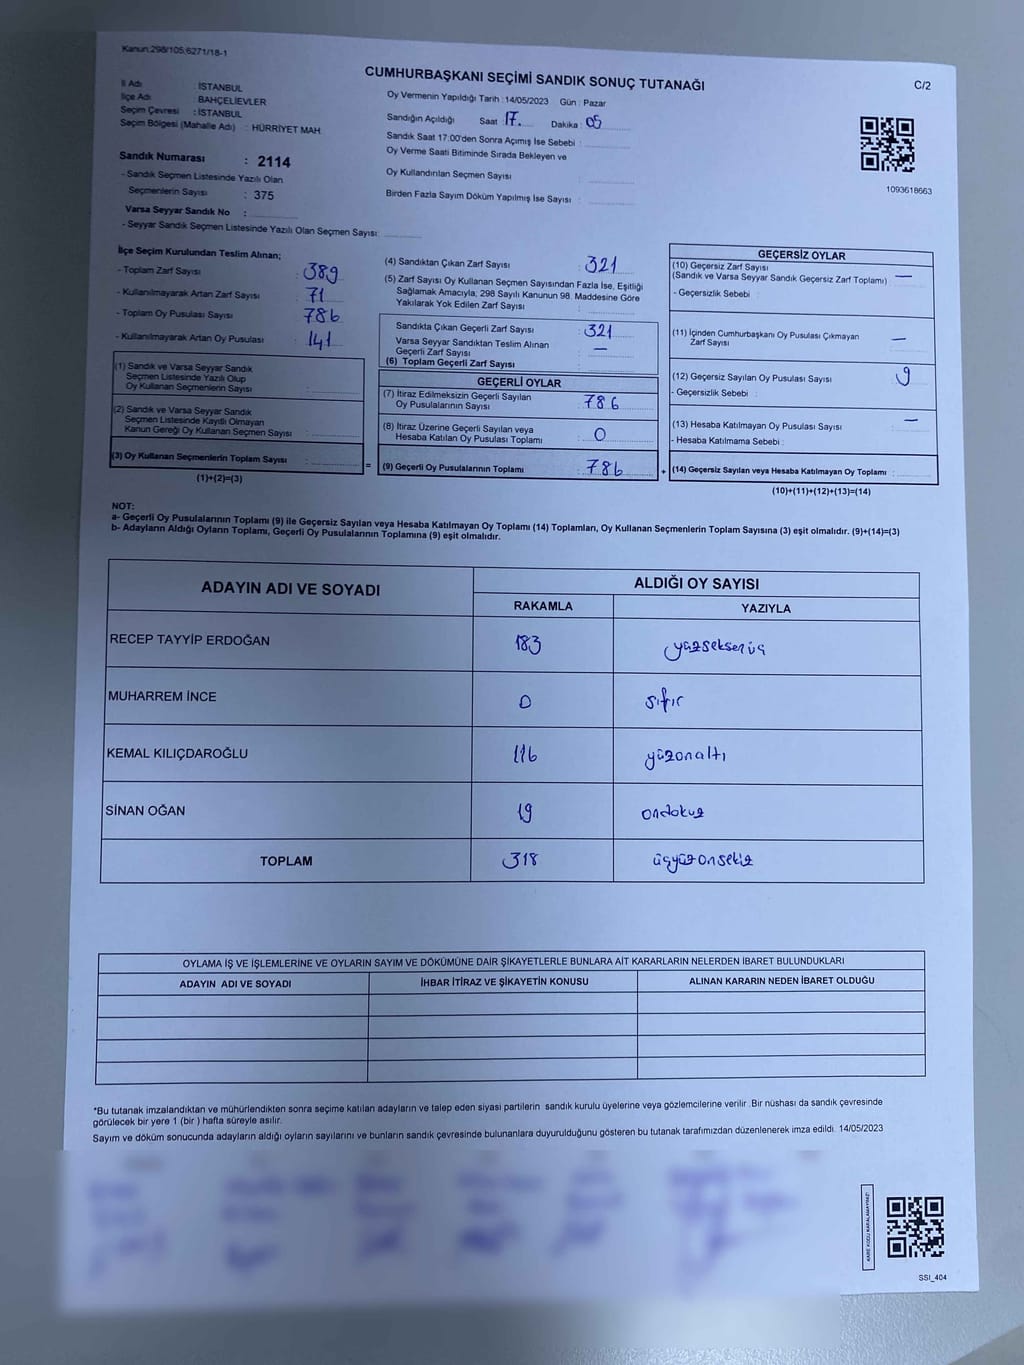 Kanun:298/105;6271/18-1
CUMHURBAŞKANI SEÇİMİ SANDIK SONUÇ TUTANAĞI
C/2
İl Adı : İSTANBUL
İlçe Adı : BAHÇELİEVLER
Seçim Çevresi : İSTANBUL
Seçim Bölgesi (Mahalle Adı) : HÜRRİYET MAH.
Sandık Numarası : 2114
- Sandık Seçmen Listesinde Yazılı Olan
Seçmenlerin Sayısı : 375
Varsa Seyyar Sandık No :
- Seyyar Sandık Seçmen Listesinde Yazılı Olan Seçmen Sayısı:
Oy Vermenin Yapıldığı Tarih : 14/05/2023 Gün : Pazar
Sandığın Açıldığı Saat : 17. Dakika : 05
Sandık Saat 17:00'den Sonra Açımış İse Sebebi :
Oy Verme Saati Bitiminde Sırada Bekleyen ve
Oy Kullandırılan Seçmen Sayısı :
Birden Fazla Sayım Döküm Yapılmış İse Sayısı :
1093618663
İlçe Seçim Kurulundan Teslim Alınan;
- Toplam Zarf Sayısı : 389
- Kullanılmayarak Artan Zarf Sayısı : 71
- Toplam Oy Pusulası Sayısı : 786
- Kullanılmayarak Artan Oy Pusulası : 141
(1) Sandık ve Varsa Seyyar Sandık
Seçmen Listesinde Yazılı Olup
Oy Kullanan Seçmenlerin Sayısı :
(2) Sandık ve Varsa Seyyar Sandık
Seçmen Listesinde Kayıtlı Olmayan
Kanun Gereği Oy Kullanan Seçmen Sayısı :
(3) Oy Kullanan Seçmenlerin Toplam Sayısı :
(1)+(2)=(3)
(4) Sandıktan Çıkan Zarf Sayısı : 321
(5) Zarf Sayısı Oy Kullanan Seçmen Sayısından Fazla İse, Eşitliği
Sağlamak Amacıyla, 298 Sayılı Kanunun 98. Maddesine Göre
Yakılarak Yok Edilen Zarf Sayısı :
Sandıkta Çıkan Geçerli Zarf Sayısı : 321
Varsa Seyyar Sandıktan Teslim Alınan
Geçerli Zarf Sayısı : —
(6) Toplam Geçerli Zarf Sayısı :
GEÇERLİ OYLAR
(7) İtiraz Edilmeksizin Geçerli Sayılan
Oy Pusulalarının Sayısı : 786
(8) İtiraz Üzerine Geçerli Sayılan veya
Hesaba Katılan Oy Pusulası Toplamı : 0
= (9) Geçerli Oy Pusulalarının Toplamı : 786 +
GEÇERSİZ OYLAR
(10) Geçersiz Zarf Sayısı
(Sandık ve Varsa Seyyar Sandık Geçersiz Zarf Toplamı) : —
- Geçersizlik Sebebi :
(11) İçinden Cumhurbaşkanı Oy Pusulası Çıkmayan
Zarf Sayısı : —
(12) Geçersiz Sayılan Oy Pusulası Sayısı : 9
- Geçersizlik Sebebi :
(13) Hesaba Katılmayan Oy Pusulası Sayısı : —
- Hesaba Katılmama Sebebi :
(14) Geçersiz Sayılan veya Hesaba Katılmayan Oy Toplamı :
(10)+(11)+(12)+(13)=(14)
NOT:
a- Geçerli Oy Pusulalarının Toplamı (9) ile Geçersiz Sayılan veya Hesaba Katılmayan Oy Toplamı (14) Toplamları, Oy Kullanan Seçmenlerin Toplam Sayısına (3) eşit olmalıdır. (9)+(14)=(3)
b- Adayların Aldığı Oyların Toplamı, Geçerli Oy Pusulalarının Toplamına (9) eşit olmalıdır.
ADAYIN ADI VE SOYADI ALDIĞI OY SAYISI
RAKAMLA YAZIYLA
RECEP TAYYİP ERDOĞAN 183 yüzseksenüç
MUHARREM İNCE 0 sıfır
KEMAL KILIÇDAROĞLU 116 yüzonaltı
SİNAN OĞAN 19 ondokuz
TOPLAM 318 üçyüzonsekiz
OYLAMA İŞ VE İŞLEMLERİNE VE OYLARIN SAYIM VE DÖKÜMÜNE DAİR ŞİKAYETLERLE BUNLARA AİT KARARLARIN NELERDEN İBARET BULUNDUKLARI
ADAYIN ADI VE SOYADI İHBAR İTİRAZ VE ŞİKAYETİN KONUSU ALINAN KARARIN NEDEN İBARET OLDUĞU
*Bu tutanak imzalandıktan ve mühürlendikten sonra seçime katılan adayların ve talep eden siyasi partilerin sandık kurulu üyelerine veya gözlemcilerine verilir .Bir nüshası da sandık çevresinde
görülecek bir yere 1 (bir ) hafta süreyle asılır.
Sayım ve döküm sonucunda adayların aldığı oyların sayılarını ve bunların sandık çevresinde bulunanlara duyurulduğunu gösteren bu tutanak tarafımızdan düzenlenerek imza edildi. 14/05/2023
KARE KODU KARALAMAYINIZ!
SSI_404